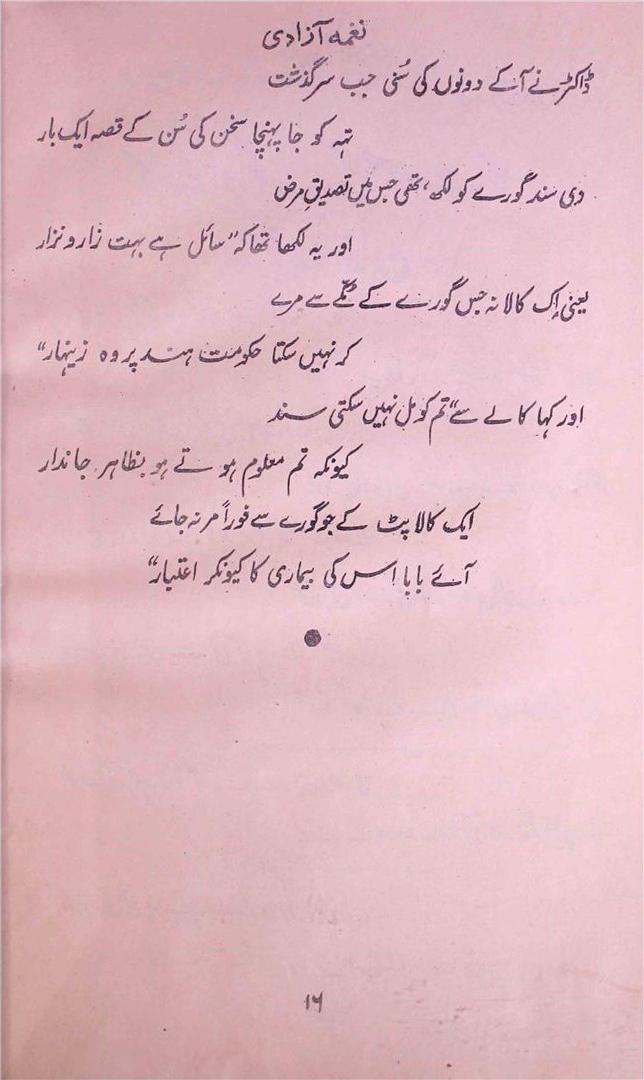 نغمہ آزادی
ڈاکٹر نے آکے دونوں کی سُنی جب سرگذشت
تہہ کو جا پہنچا سخن کی سُن کے قصہ ایک بار
دی سند گورے کو لکھ، تھی جس میں تصدیقِ مرض
اور یہ لکھا تھا کہ "سائل ہے بہت زار و نزار
یعنی اِک کالا نہ جس گورے کے مُکّے سے مرے
کر نہیں سکتا حکومت ہند پر وہ زینہار"
اور کہا کالے سے "تم کو مل نہیں سکتی سند
کیونکہ تم معلوم ہوتے ہو بظاہر جاندار
ایک کالا پٹ کے جو گورے سے فوراً مر نہ جائے
آئے بابا اس کی بیماری کا کیونکر اعتبار"
۱۶